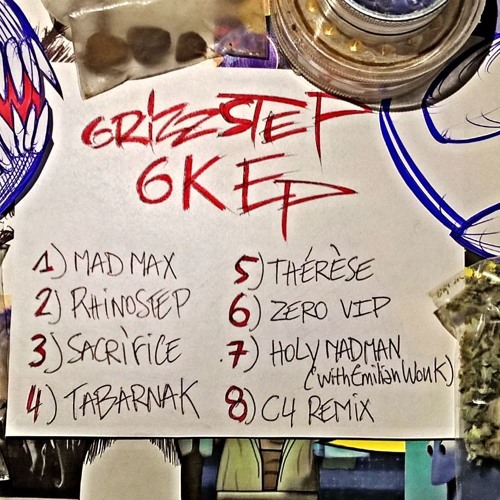 GRIZZSTEP
6K EP
1) MAD MAX
2) RHINOSTEP
3) SACRIFICE
4) TABARNAK
5) THÉRÈSE
6) ZERO VIP
7) HOLY MADMAN
(with Emilian Wonk)
8) C4 REMIX